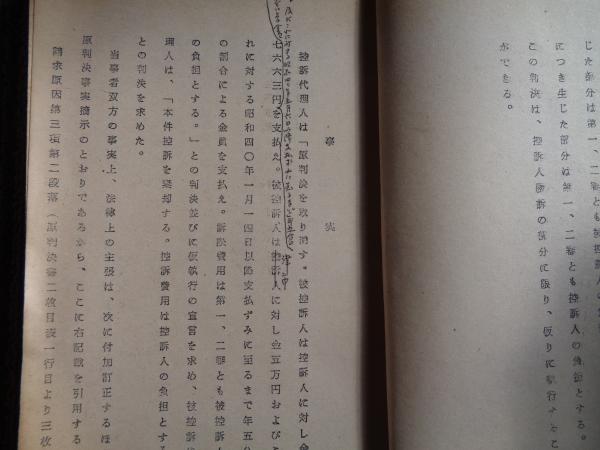 じた部分は第一、二審とも被控訴人の負担とする。
につき生じた部分は第一、二審とも控訴人の負
この判決は、控訴人勝訴の部分に限り、仮りに執行すること
ができる。
事実
控訴代理人は「原判決を取り消す。被控訴人は控訴人に対し金
七六六三円を支払え。被控訴人は控訴人に対し金五万円およびこ
れに対する昭和四〇年一月一四日以降支払ずみに至るまで年五分
の割合による金員を支払え。訴訟費用は第一、二審とも被控訴
の負担とする。」との判決並びに仮執行の宣言を求め、被控訴
理人は、「本件控訴を棄却する。控訴費用は控訴人の負担とする
との判決を求めた。
当事者双方の事実上、法律上の主張は、次に付加訂正するほ
原判決事実摘示のとおりであるから、ここに右記載を引用する
請求原因第三項第二段落(原判決書二枚目表一行目より三枚